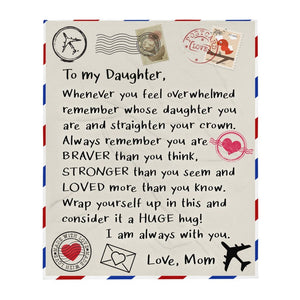 To my Daughter,
Whenever you feel overwhelmed
remember whose daughter you
are and straighten your crown.
Always remember you are
BRAVER than you think,
STRONGER than you seem and
LOVED more than you know.
Wrap yourself up in this and
consider it a HUGE hug!
I am always with you.
Love, Mom